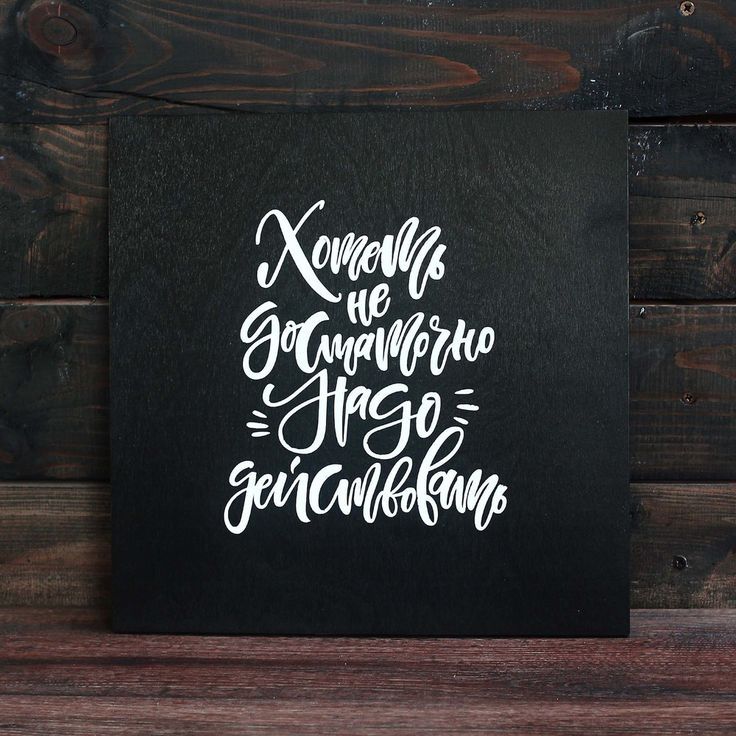 Хотеть
не
достаточно
Надо
действовать